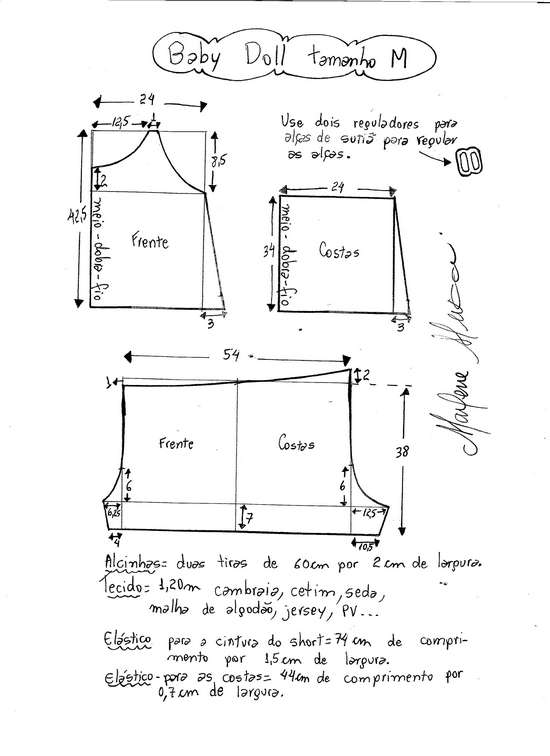 Baby Doll tamanho M
24
12,5
1
8,5
2
42,5
meio-dobra-fio
Frente
3
Use dois reguladores para
alças de sutiã para regular
as alças.
24
34
meio-dobra-fio
Costas
3
Marlene Mukai
54
1
2
Frente
Costas
38
6
6
6,25
12,5
7
4
10,5
Alcinhas= duas tiras de 60cm por 2cm de largura.
Tecido= 1,20m cambraia, cetim, seda,
malha de algodão, jersey, PV...
Elástico para a cintura do short=74cm de compri-
mento por 1,5cm de largura.
Elástico-para as costas= 44cm de comprimento por
0,7cm de largura.